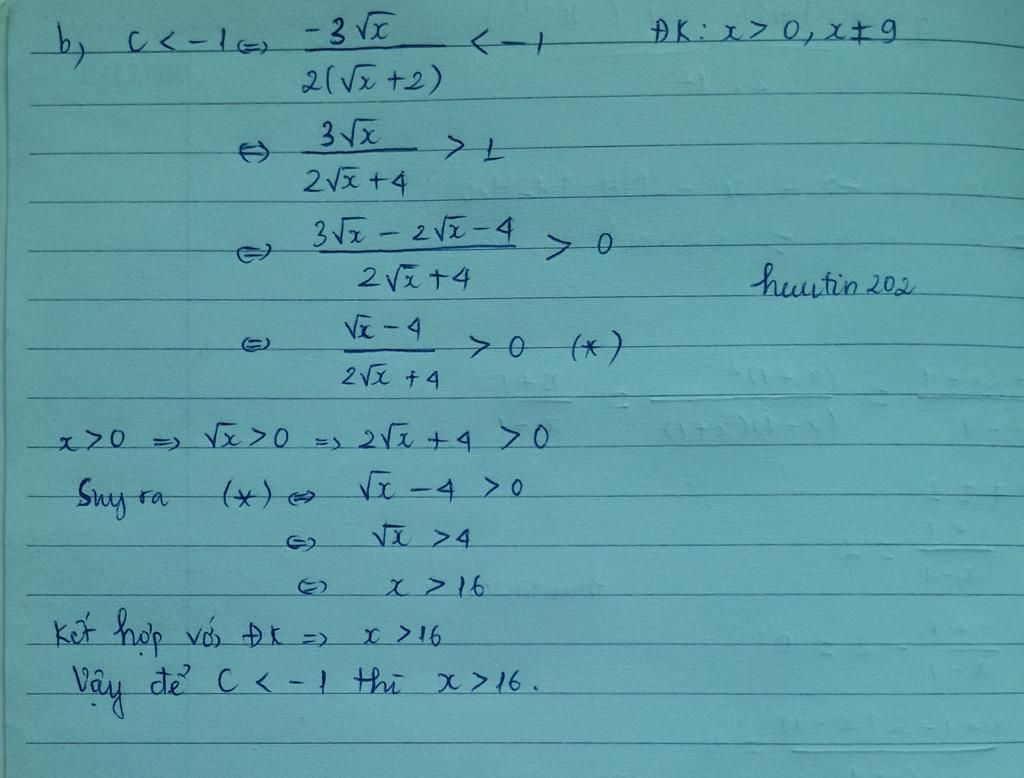 b, C < -1 ⇔ -3√x / 2(√x + 2) < -1 ĐK: x > 0, x ≠ 9
⇔ 3√x / 2√x + 4 > 1
⇔ 3√x - 2√x - 4 / 2√x + 4 > 0
huutin 202
⇔ √x - 4 / 2√x + 4 > 0 (*)
x > 0 ⇒ √x > 0 ⇒ 2√x + 4 > 0
Suy ra (*) ⇔ √x - 4 > 0
⇔ √x > 4
⇔ x > 16
Kết hợp với ĐK ⇒ x > 16
Vậy để C < -1 thì x > 16.